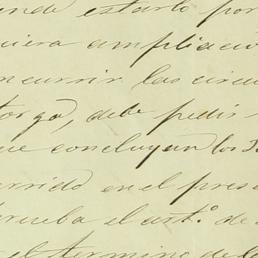 ende estarlo por
quiera ampliació
ncurrir las circu
torga, debe pedir
que concluyan los
rrido en el pres
prueba el art.º de
el termino de